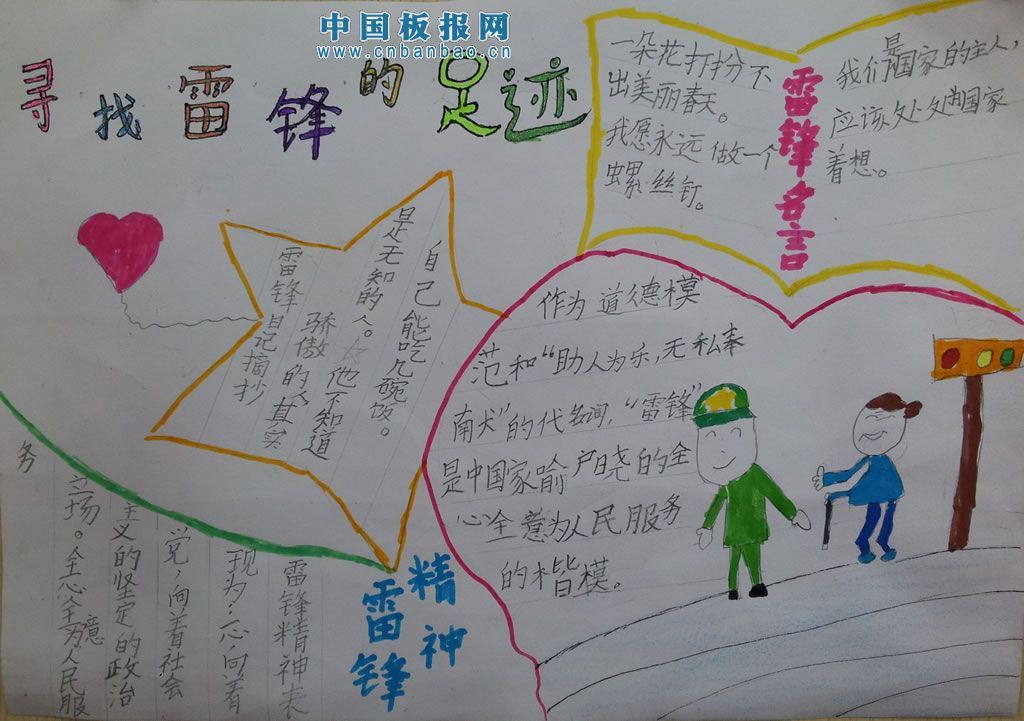 中国板报网
www.cnbanbao.cn
寻找雷锋的足迹
一朵花打扮不
出美丽春天。
我愿永远做一个
螺丝钉。
雷锋名言
我们是国家的主人，
应该处处为国家
着想。
雷锋日记摘抄
骄傲的人，其实
是无知的人。他不知道
自己能吃几碗饭。
作为道德模
范和“助人为乐，无私奉
献”的代名词，“雷锋”
是中国家喻户晓的全
心全意为人民服务
的楷模。
雷锋
精神
雷锋精神表
现为：一心向着
党，向着社会
主义的坚定的政治
立场。全心全意为人民服
务